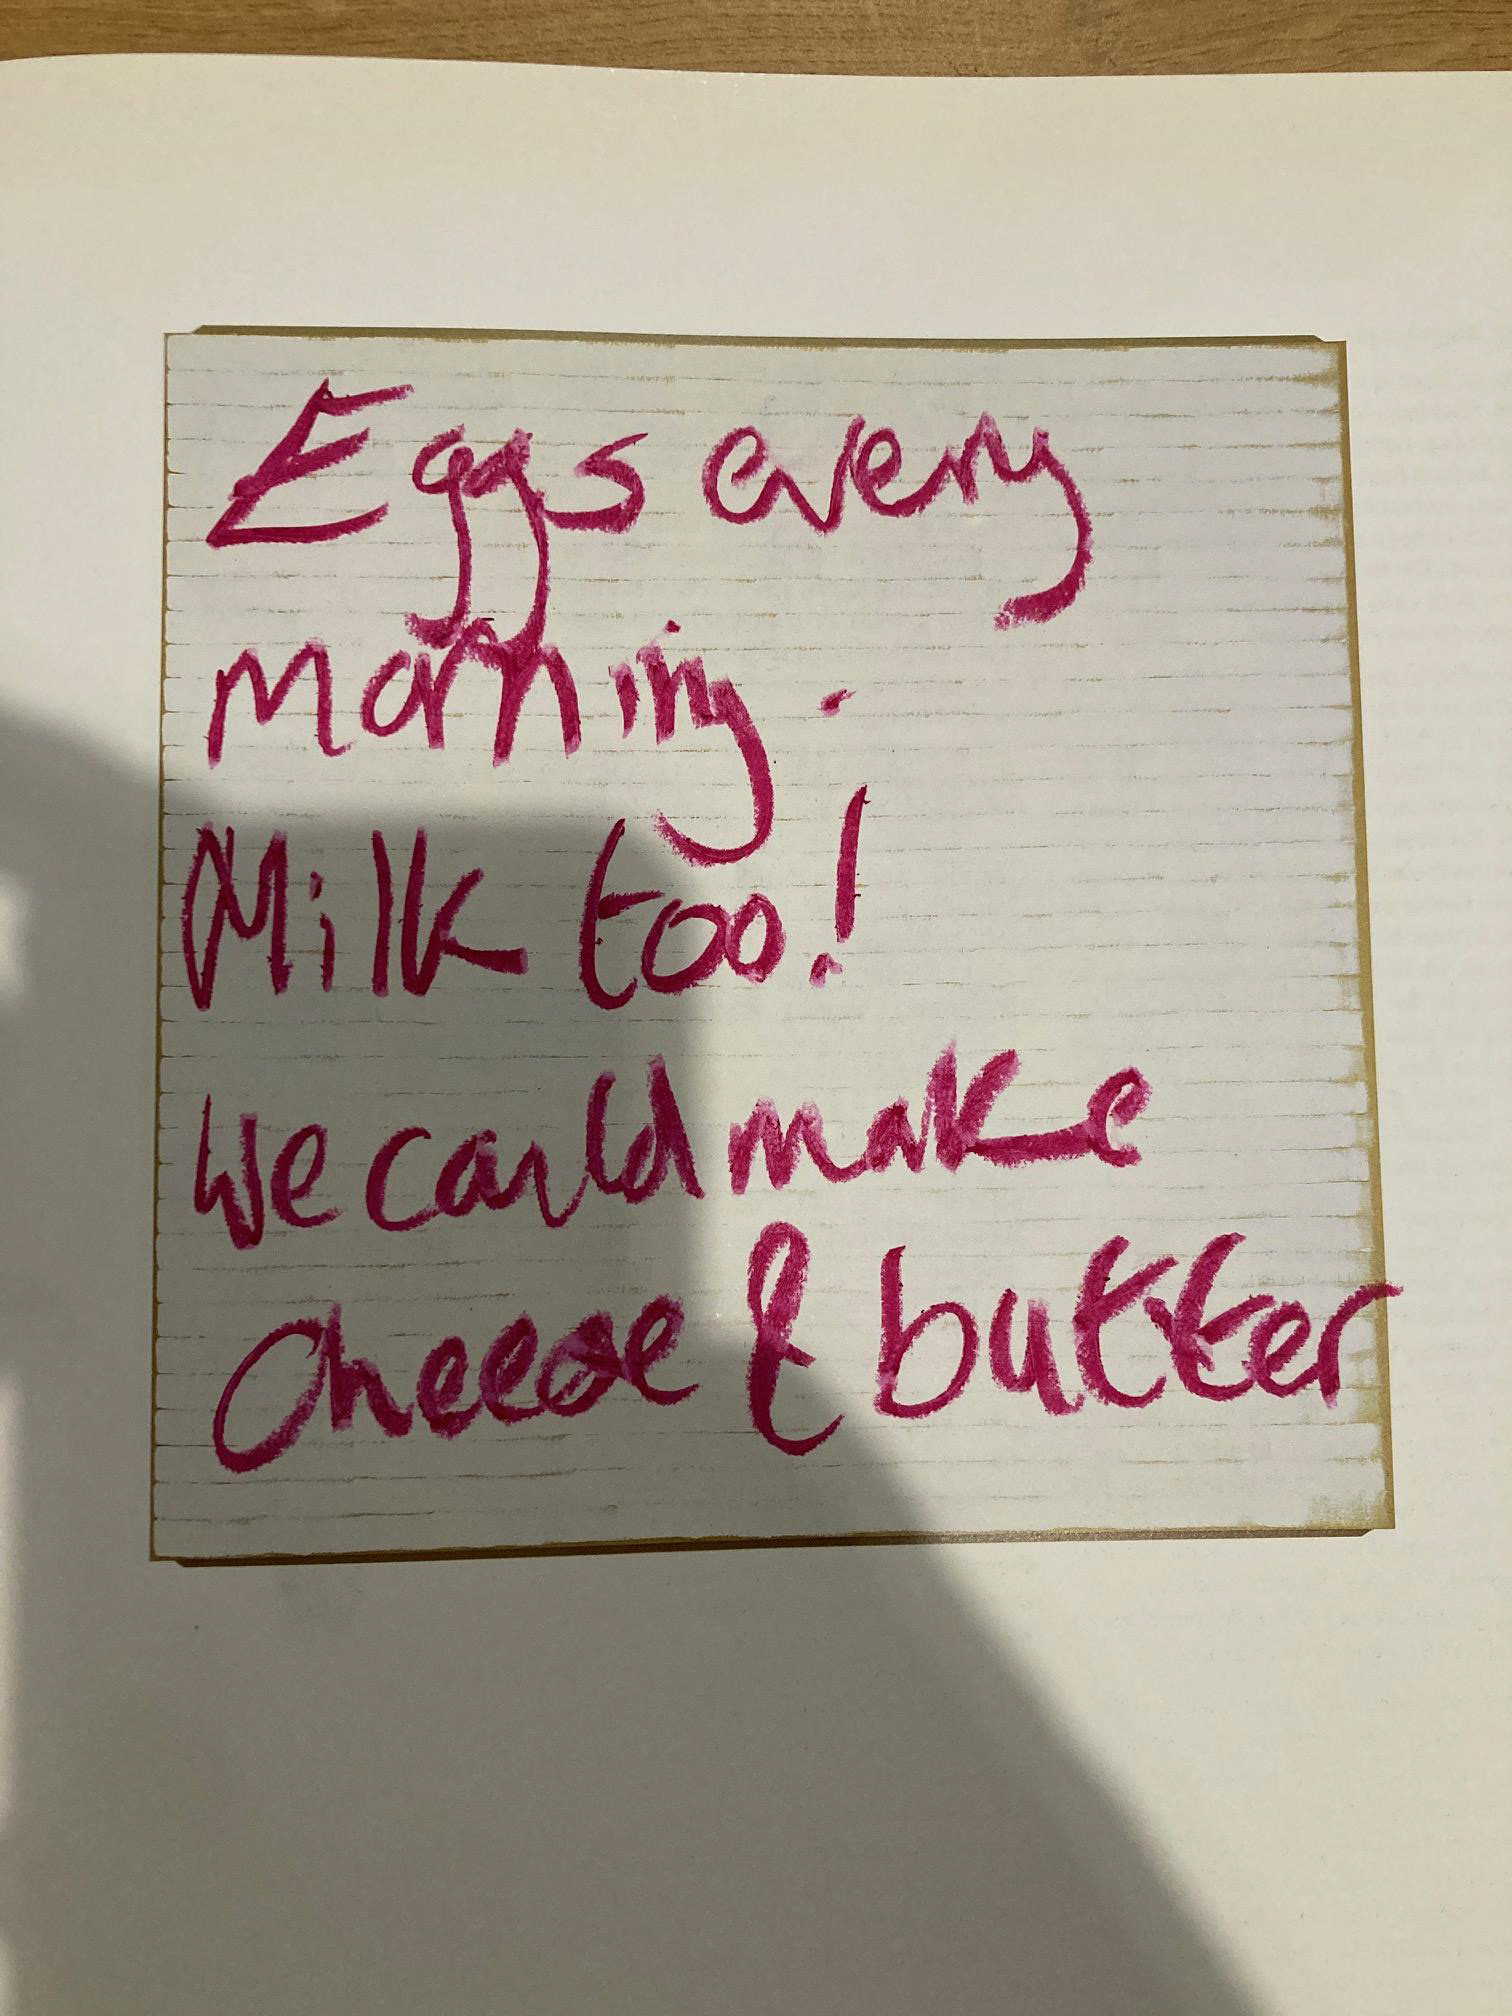 Eggs every
morning.
Milk too!
We could make
Cheese & butter